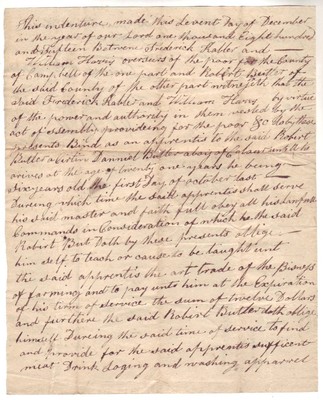 This indenture made this Levent Day of December
in the year of our Lord one thousand Eight hundred
and fifteen Between Frederick Rabler and
William Havis overseers of the poor for the County
of Campbell of the one part and Robbert Butler of
the said County of the other part witnesseth that the
said Frederick Rabler and William Havis by virtue
of the power and authority in them vested by the
act of assembly provideing for the poor &c do by these
presents Bind as an apprentis to the said Robert
Butler a certin Danniel Butler a boy of Colour untill he
arives at the age of twenty one years he being
six years old the first Day of october last
During which time the said apprentis shall serve
his said master and faith full obay all his lawfull
Commands in Consideration of which he the said
Robirt But Doth by these presents oblige
him self to teach or cause to be taught unt
the said apprentis the art trade of the Bisness
of farming and to pay unto him at the Expiration
of his term of service the sum of twelve Dollars
and furthere the said Robert Butler doth oblige
himself Dureing the said time of service to find
and provide for the said apprentis sufficent
meet Drink Loging and washing apparrel